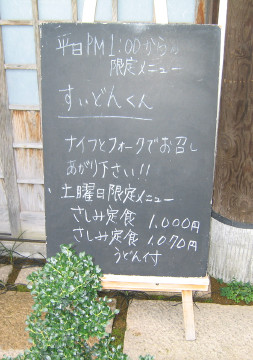 平日PM1:00からの
限定メニュー
すいどんくん
ナイフとフォークでお召し
あがり下さい!!
土曜日限定メニュー
さしみ定食 1,000円
さしみ定食 1,070円
うどん付